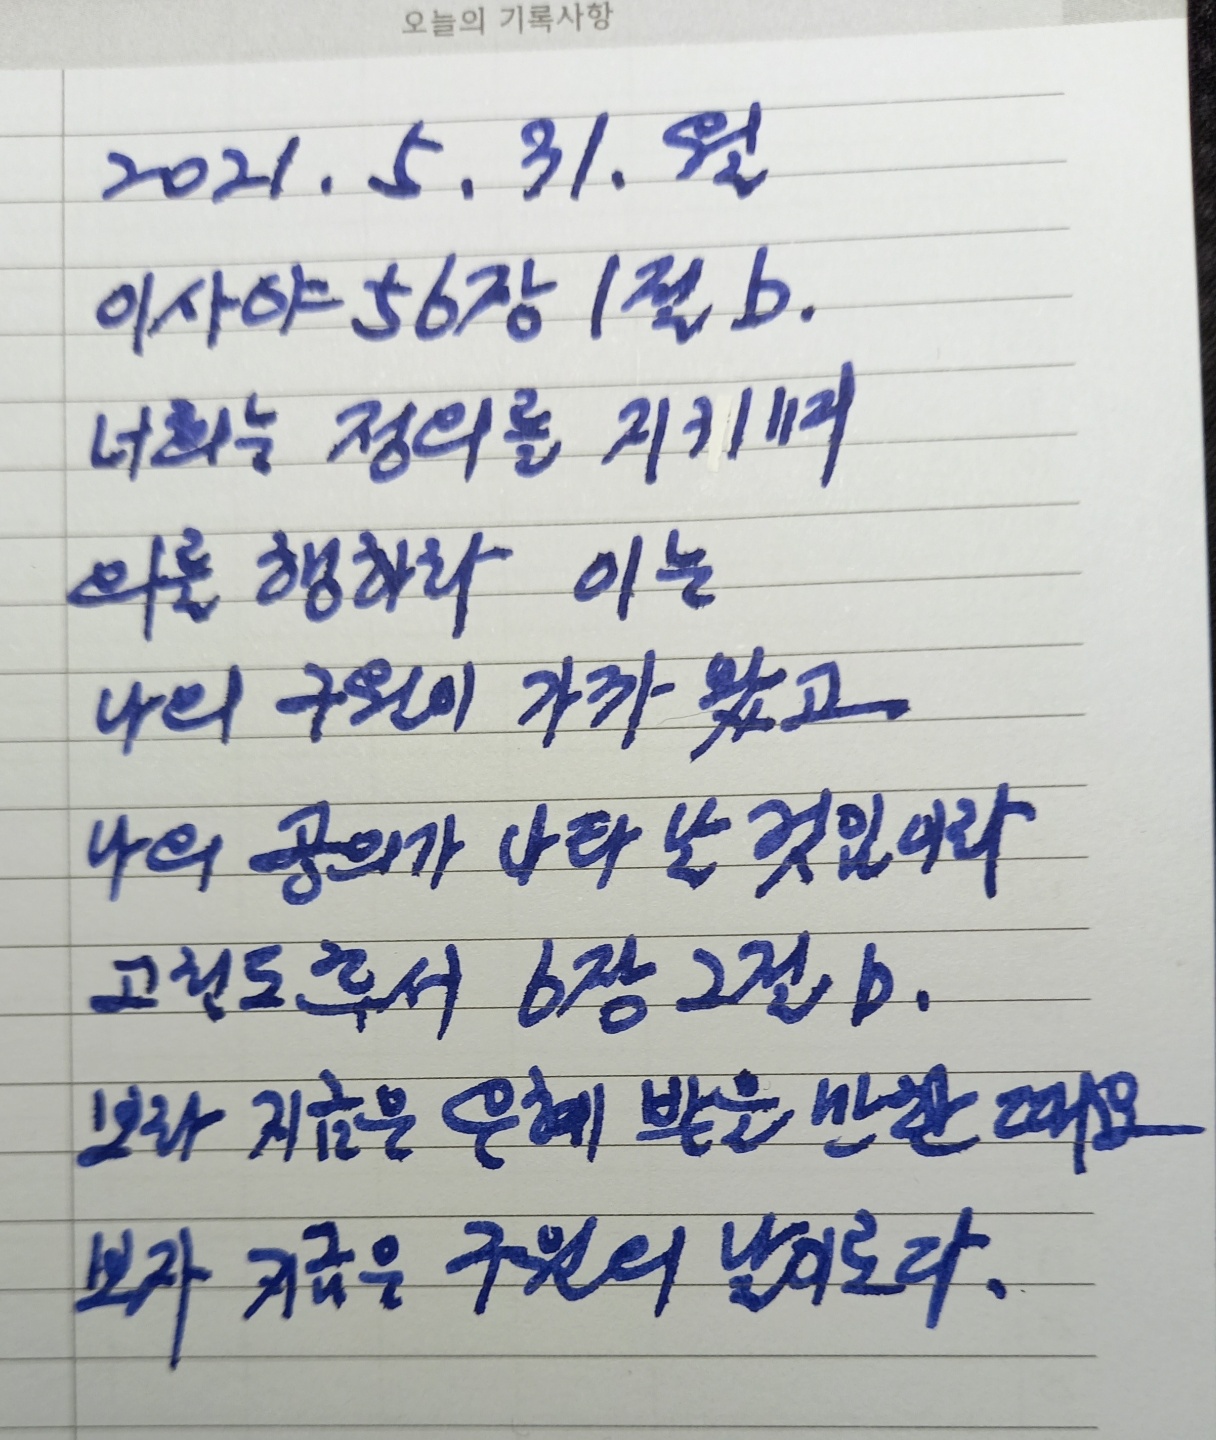 오늘의 기록사항
2021. 5. 31. 월
이사야 56장 1절 b.
너희는 정의를 지키며
의를 행하라 이는
나의 구원이 가까 왔고
나의 공의가 나타 날 것임이라
고린도후서 6장 2절 b.
보라 지금은 은혜 받을 만한 때요
보라 지금은 구원의 날이로다.